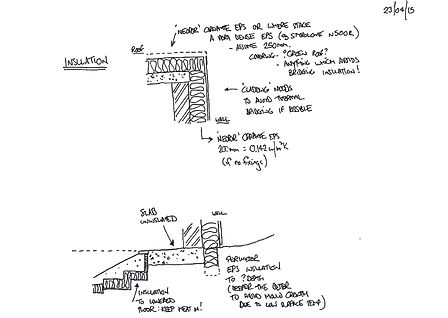 23/04/15
'NEODOR' GRAPHITE EPS OR WHERE SPACE
A MORE DENSE EPS (eg STYRODUR N500R)
- ASSUME 250mm.
COVERING - ? GREEN ROOF?
- ANYTHING WHICH AVOIDS
BRIDGING INSULATION!
ROOF
INSULATION
'CLADDING' NEEDS
TO AVOID THERMAL
BRIDGING IF POSSIBLE
WALL
'NEODOR' GRAPHITE EPS
200mm = 0.142 w/m²K
(if no fixings)
SLAB
UNINSULATED
WALL
PERIMETER
EPS INSULATION
TO ? DEPTH
(DEEPER THE BETTER
TO AVOID MOULD GROWTH
DUE TO LOW SURFACE TEMP)
INSULATION
TO LOWERED
FLOOR: KEEP HEAT IN!